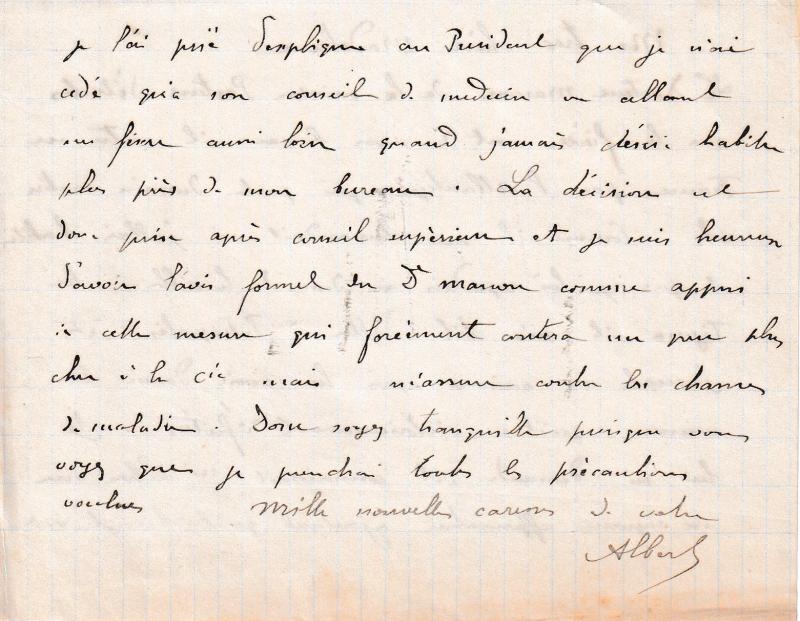 je l'ai prié d'expliquer au Président que je n'ai
cédé qu'à son conseil de médecin en allant
me fixer aussi loin quand j'amais désiré habiter
plus près de mon bureau. La décision est
donc prise après conseil supérieur et je suis heureux
d'avoir l'avis formel du Dr manon comme appui
à cette mesure qui forcément coutera un peu plus
cher à la Cie mais m'assure contre les chances
de maladie. Donc soyez tranquille puisque vous
voyez que je prendrai toutes les précautions
voulues Mille nouvelles caresses de votre
Albert